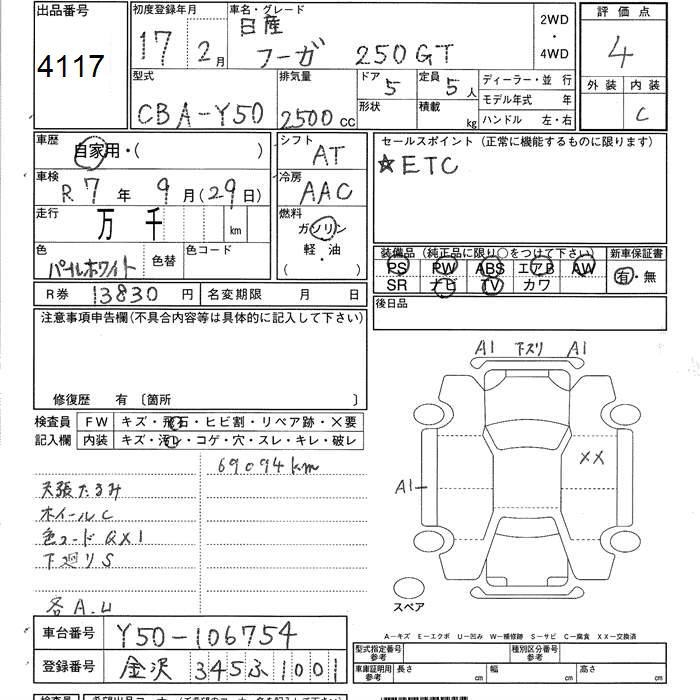 出品番号
4117
初度登録年月
17年 2月
車名・グレード
日産
フーガ 250GT
2WD
・
4WD
評価点
4
外装 内装
C
型式
CBA-Y50
排気量
2500cc
ドア
5
形状
定員
5人
積載
kg
ディーラー・並 行
モデル年式 年
ハンドル 左・右
車歴
自家用・( )
車検
R 7年 9月(29日)
走行
万 千 km
色
パールホワイト
色替
色コード
シフト
AT
冷房
AAC
燃料
ガソリン
軽・油
( ・ )
セールスポイント(正常に機能するものに限ります)
☆ETC
装備品(純正品に限り○をつけて下さい)
PS PW ABS エアB AW
SR ナビ TV カワ
新車保証書
有・無
後日品
R券 13830円
名変期限 月 日
注意事項申告欄(不具合内容等は具体的に記入して下さい)
修復歴 有〔箇所 〕
検査員
記入欄
FW キズ・飛石・ヒビ割・リペア跡・×要
内装 キズ・汚レ・コゲ・穴・スレ・キレ・破レ
69094km
天張たるみ
ホイールC
色コードQX1
下廻りS
各A.U
A1 下スリ A1
XX
A1
スペア
車台番号 Y50-106754
登録番号 金沢 345ふ1001
A－キズ E－エクボ U－凹み W－補修跡 S－サビ C－腐食 XX－交換済
型式指定番号
参考
種別区分番号
参考
車庫証明用
参考
長さ cm 幅 cm 高さ cm